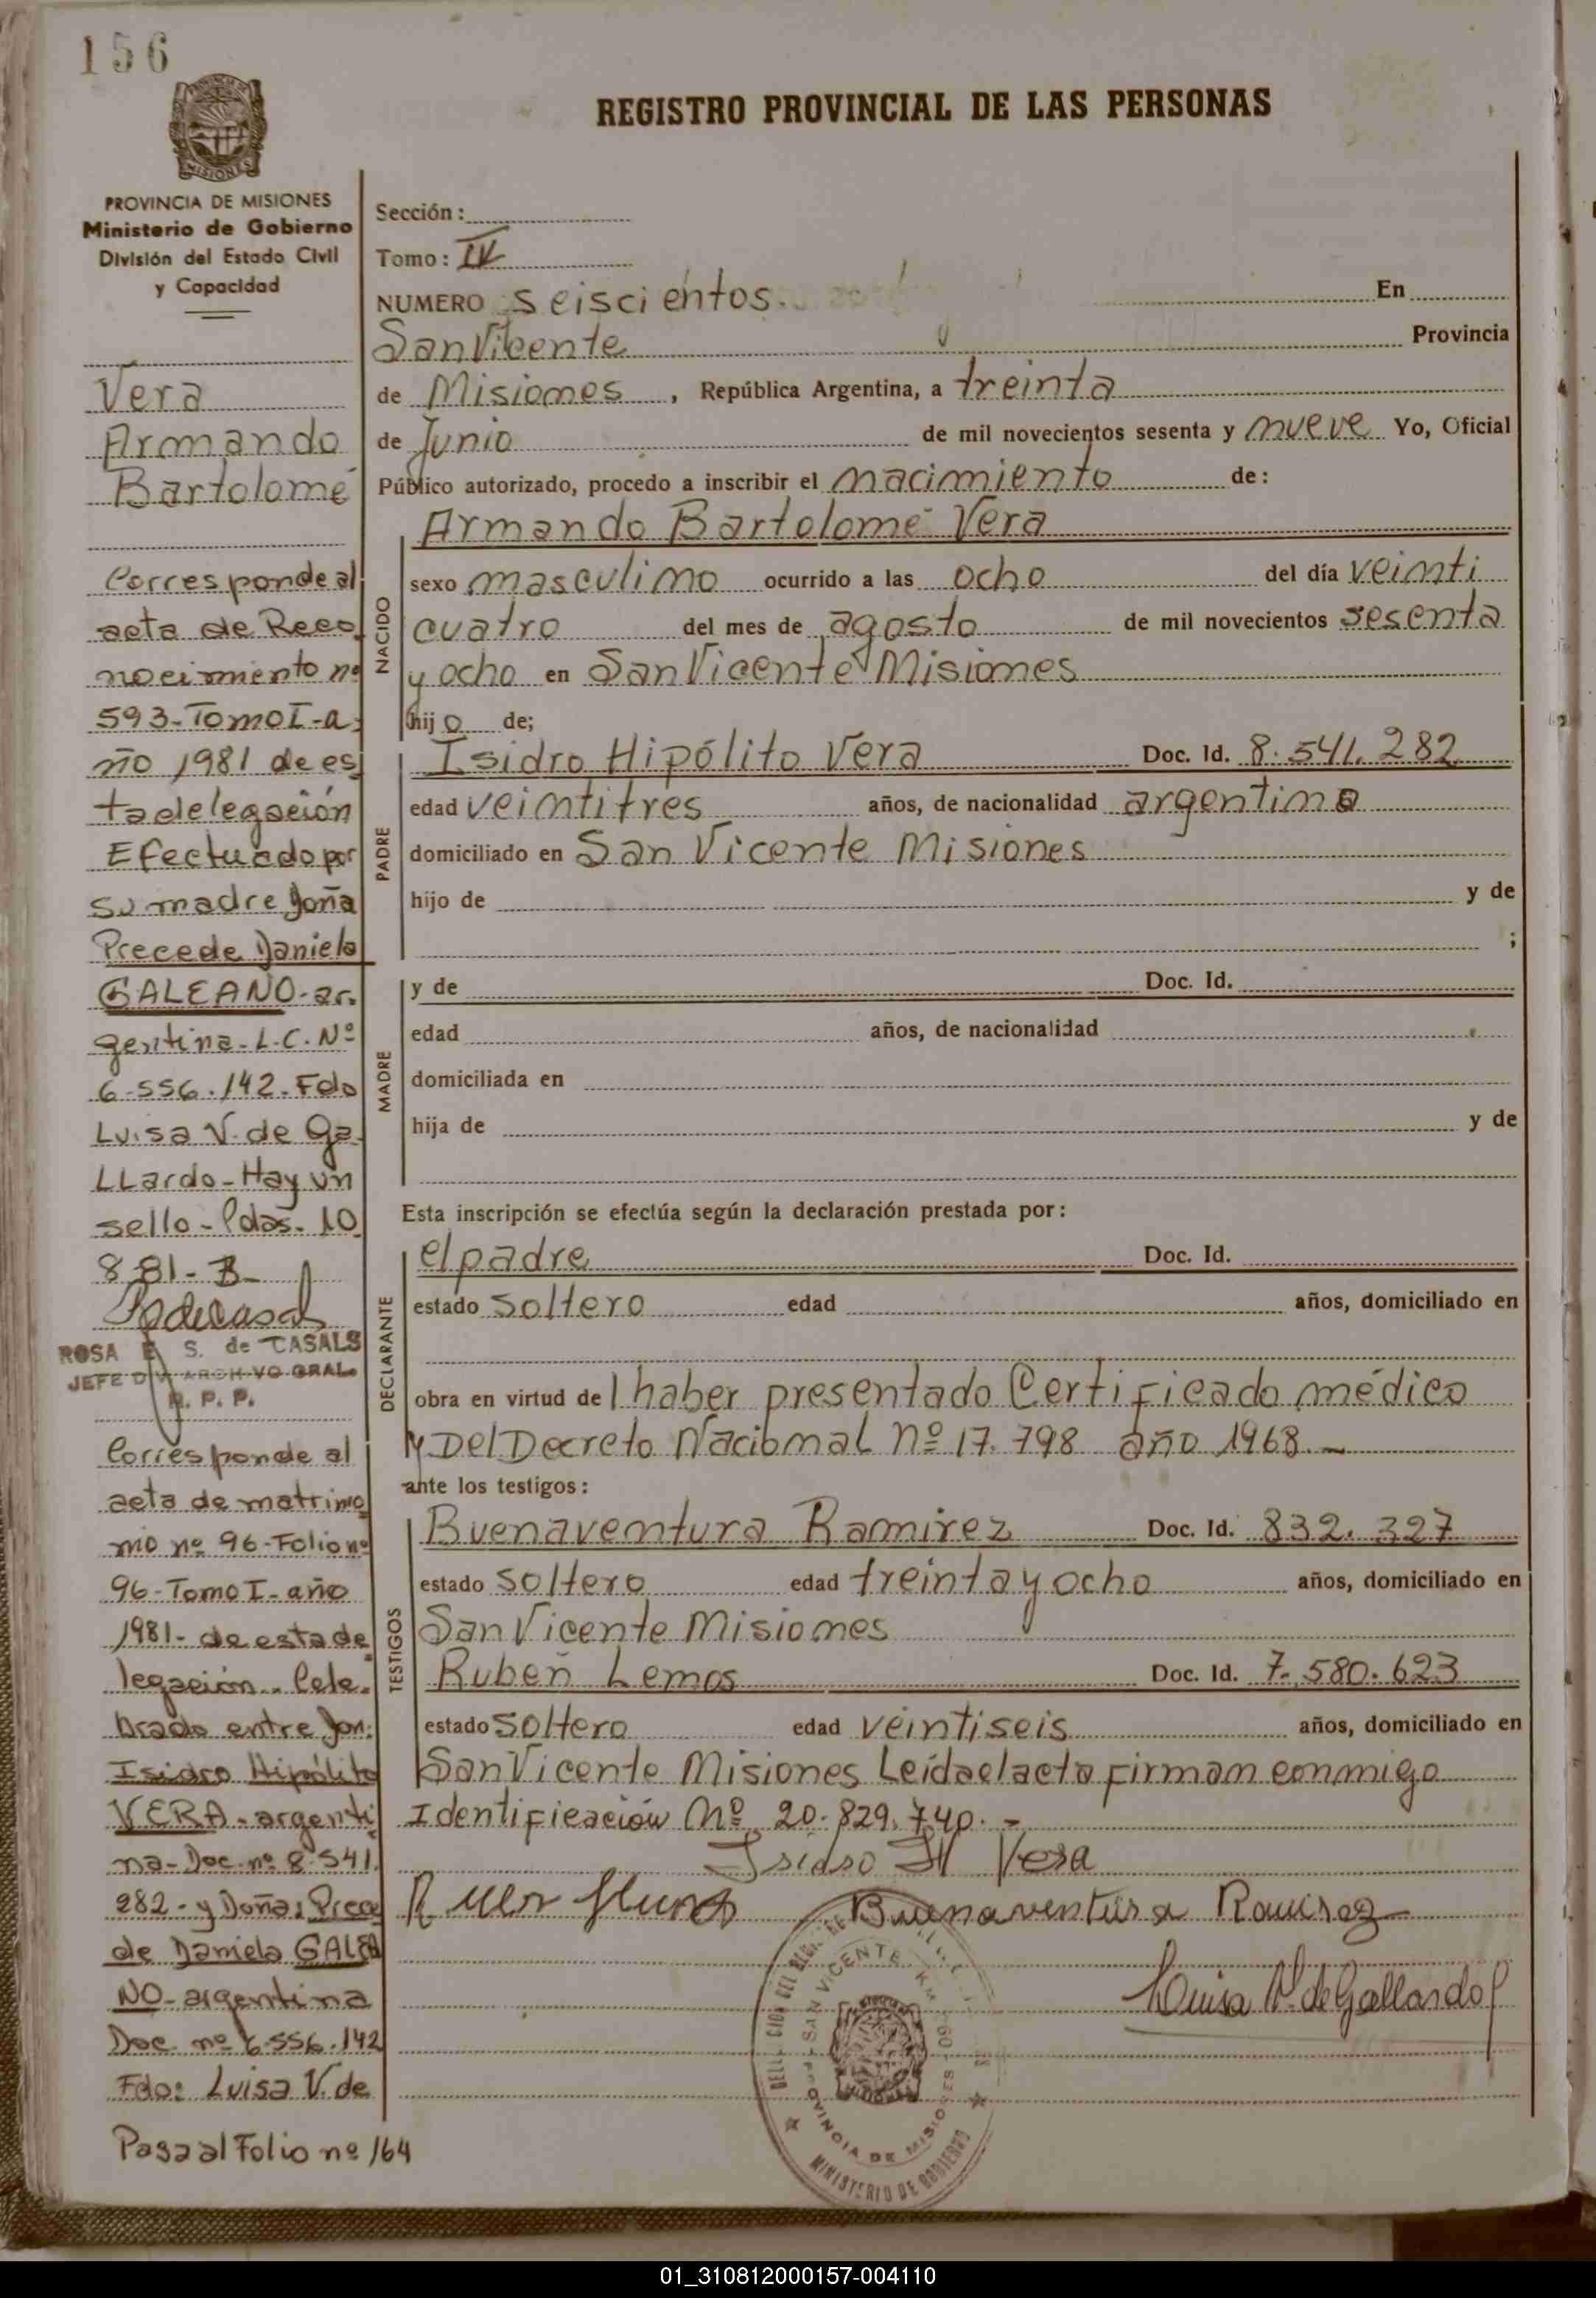 156
REGISTRO PROVINCIAL DE LAS PERSONAS
MISIONES
PROVINCIA DE MISIONES
Ministerio de Gobierno
División del Estado Civil
y Capacidad
Vera
Armando
Bartolomé
Corresponde al
acta de Reco
nocimiento nº
593-Tomo I-a
ño 1981 de es
ta delegación
Efectuado por
su madre Doña
Precede Daniela
GALEANO-ar.
gentina-L.C.Nº
6-556.142-Fdo
Luisa V. de Ga
LLardo-Hay un
sello-Pdas-10
8 81-B-
ROSA E. S. de CASALS
JEFE DIV. ARCHIVO GRAL.
R. P. P.
Corresponde al
acta de matrimo
nio nº 96-Folio nº
96-Tomo I-año
1981-de esta de
legación-Cele.
brado entre Don:
Isidro Hipólito
VERA-argenti
na-Doc. nº 8.541.
282-y Doña: Prece
de Daniela GALEA
NO-argentina
Doc. nº 6-556.142
Fdo: Luisa V. de
Pasa al Folio nº 164
Sección:
Tomo: IV
NUMERO seiscientos. En
San Vicente Provincia
de Misiones, República Argentina, a treinta
de Junio de mil novecientos sesenta y nueve Yo, Oficial
Público autorizado, procedo a inscribir el nacimiento de:
NACIDO
Armando Bartolomé Vera
sexo masculino ocurrido a las ocho del día veinti
cuatro del mes de agosto de mil novecientos sesenta
y ocho en San Vicente Misiones
hijo de;
PADRE
Isidro Hipólito Vera Doc. Id. 8.541.282
edad veintitres años, de nacionalidad argentina
domiciliado en San Vicente Misiones
hijo de y de
;
MADRE
y de Doc. Id.
edad años, de nacionalidad
domiciliada en
hija de y de
Esta inscripción se efectúa según la declaración prestada por:
DECLARANTE
el padre Doc. Id.
estado soltero edad años, domiciliado en
obra en virtud de haber presentado Certificado médico
y Del Decreto Nacional Nº 17.798 año 1968.-
ante los testigos:
TESTIGOS
Buenaventura Ramirez Doc. Id. 832.327
estado soltero edad treinta y ocho años, domiciliado en
San Vicente Misiones
Rubeñ Lemos Doc. Id. 7.580.623
estado soltero edad veintiseis años, domiciliado en
San Vicente Misiones Leída el acta firman conmigo
Identificación Nº 20.829.740.-
Isidro H Vera
Buenaventura Ramirez
Luisa V. de Gallardo
SAN VICENTE
PROVINCIA DE MISIONES
MINISTERIO DE GOBIERNO
01_310812000157-004110